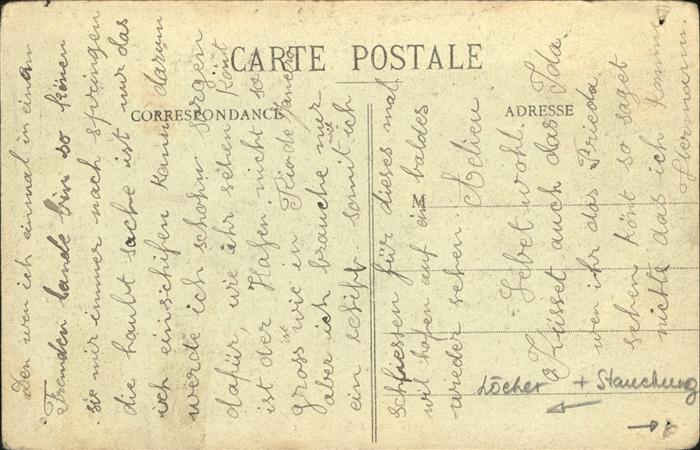 CARTE POSTALE
CORRESPONDANCE
ADRESSE
M
Den wen ich einmal in einem
Fremden lande bin so könen
sie mir immer nach springen
die haubt sache ist nur das
ich einschifen kann darum
werde ich schohn sorgen
dafür, wie ihr sehen könt
ist der Hafen nicht so
gross wie in Rio de Janero
ist
aber ich brauche nur
mit
ein schiff somit ich
Schliessen für dieses mal
wir hofen auf ein baldes
wieder sehen. Adieu
Lebet wohl.
Küsset auch das Ida.
wen ihr das Frieda
sehen könt so saget
nichts das ich komme
Hermann.
Löcher + Stauchung